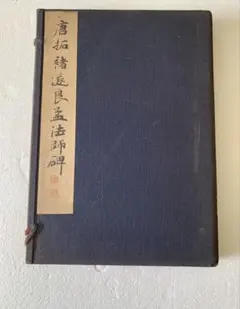 唐拓褚遂良孟法師碑